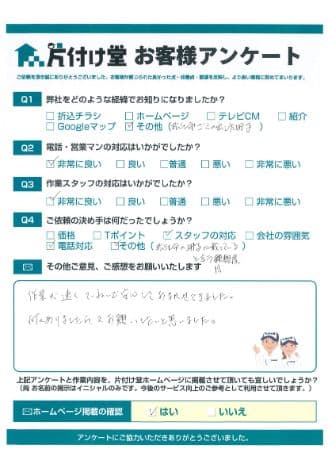 片付け堂 お客様アンケート
Q1 弊社をどのような経緯でお知りになりましたか?
□ 折込チラシ □ ホームページ □ テレビCM □ 紹介
□ Googleマップ ☑ その他 (
Q2 電話・営業マンの対応はいかがでしたか?
☑ 非常に良い □ 良い □ 普通 □ 悪い □ 非常に悪い
Q3 作業スタッフの対応はいかがでしたか?
☑ 非常に良い □ 良い □ 普通 □ 悪い □ 非常に悪い
Q4 ご依頼の決め手は何だったでしょうか?
□ 価格 □ Tポイント ☑ スタッフの対応 □ 会社の雰囲気
☑ 電話対応 ☑ その他 (
その他ご意見、ご感想をお願いいたします
作業が速くていねいで安心しておまかせできました。
何かありましたらまたお願いしたいと思いました。
上記アンケートと作業内容を、片付け堂ホームページに掲載させて頂いても宜しいでしょうか?
(尚 お名前の掲示はイニシャルのみです。今後のサービス向上のご参考として利用させて頂きます。)
ホームページ掲載の確認 ☑ はい □ いいえ
アンケートにご協力いただきありがとうございました。